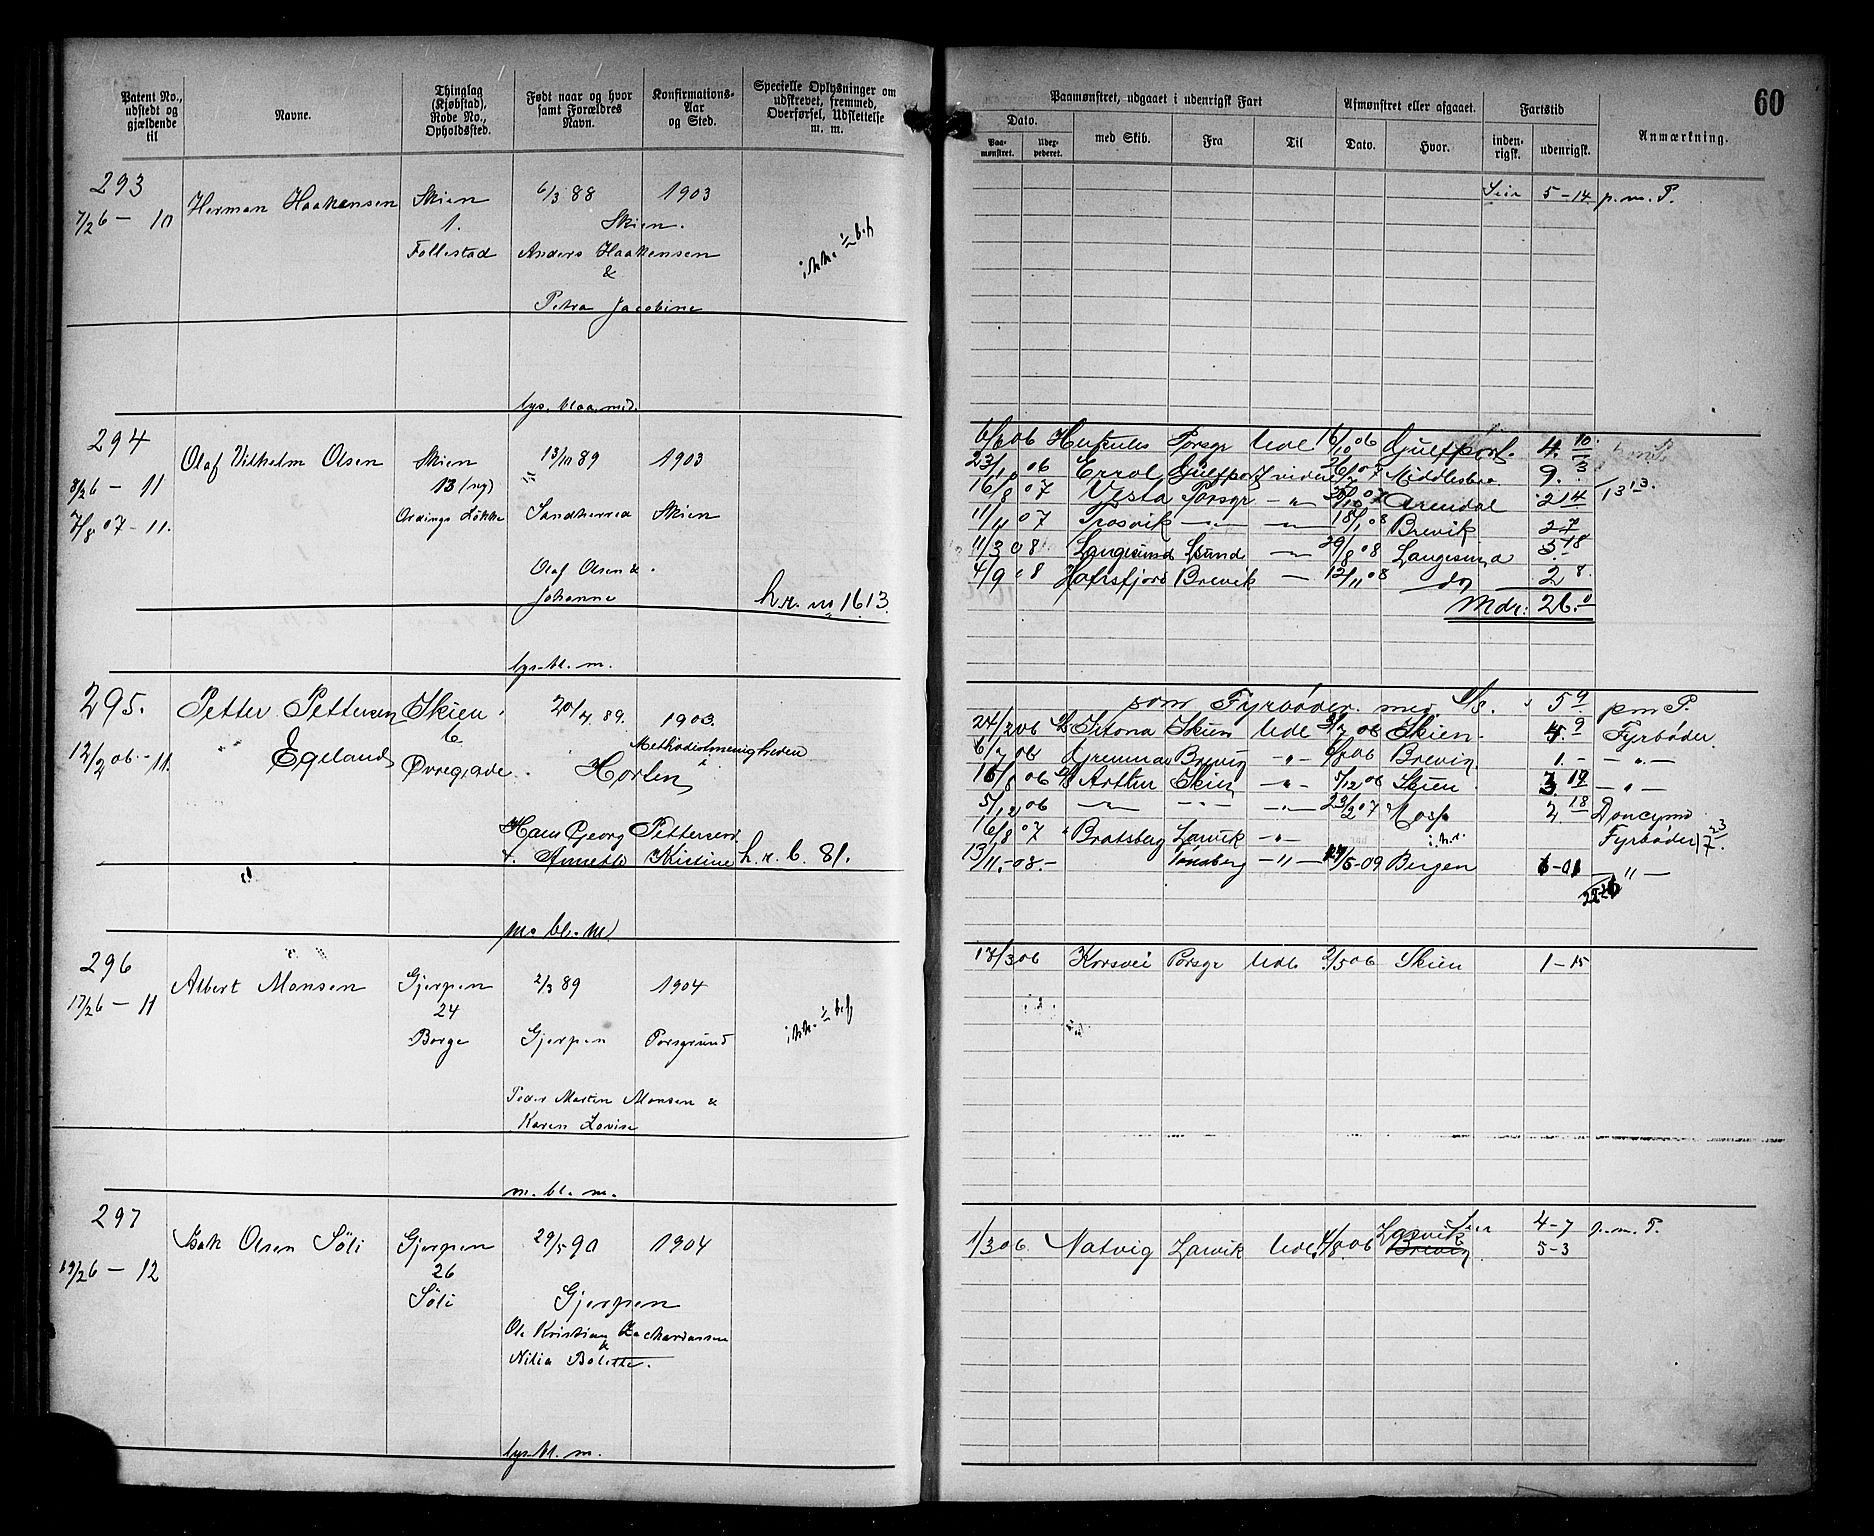 60
Patent No., udstedt og gjældende til
Navne.
Thinglag (Kjøbstad), Rode No., Opholdssted.
Født naar og hvor samt Forældres Navn.
Konfirmations-Aar og Sted.
Specielle Oplysninger om udskrevet, fremmed, Overførsel, Udslettelse m. m.
Paamønstret, udgaaet i udenrigsk Fart
Afmønstret eller afgaaet.
Fartstid
Anmærkning.
Dato.
Paa-mønstret.
Udex-pederet.
med Skib.
Fra
Til
Dato.
Hvor.
inden-rigsk.
udenrigsk.
293 Herman Haakensen Skien 6/3 88 1903 5-14 p.m.P.
7/26 - 10 1. Skien.
Follestad Anders Haakensen ikke
&
Petra Jacobine
lys. blaa. mid.
294 Olaf Vilhelm Olsen Skien 13/10 89 1903
8/26 - 11 13 (ny)
7/8 07 - 11. Sandherred Skien
Olaf Olsen &
Johanne h.r. no 1613.
Herkules Porsgr Ude 16/10 06 Gulfport. 4. 10
23/10 06 Errol Gulfport videre 26/7 07 Middlesbro 9. 3
16/8 07 Vesta Porsgr - " Arendal 2 14 13 13.
11/11 07 Trosvik - " - - " - 18/1 08 Brevik 2 7
11/3 08 Langesund Lsund - " - 29/8 08 Langesund 5 18
4/9 08 Hafrsfjord Brevik - 12/11 08 do 2 8
Mdr: 26. 0
lys. bl. m.
295. Petter Pettersen Skien 20/4 89. 1903.
12/2 06. - 11. Egeland 6 Methodistmenigheden i
Øvregade. Horten
Hans Georg Pettersen
& Annette Kristine h.r. b. 81.
som Fyrbøder med 5 9 pm P.
24/2 06 Skien Ude 3/7 06 Skien. 4. 9 Fyrbøder.
6/7 06 Brevig - " - 06 Brevig 1. - - " -
16/8 06 Arthur Skien - " - 5/12 06 Skien 3. 17 - " -
5/12 06 - " - - " - - " - 23/2 07 Moss 2 18 Donkymd
16/8 07 Bratsberg Larvik - " - i.h.r. Fyrbøder 7 23
13/11. - 08. - Tønsberg - " - /5-09 Bergen - " -
m. bl. m.
296 Albert Monsen Gjerpen 2/3 89 1904
17/26 - 11 24
Borge Gjerpen Porsgrund ikke
Peder Martin Monsen &
Karen Lovise
17/3 06 Korsvei Porsgr Ude 9/5 06 Skien 1-15
m. bl. m.
297 Isak Olsen Söli Gjerpen 29/5 90 1904
19/26 - 12 26
Söli Gjerpen
Ole Kristian Zachariassen
&
Nilia Bolette.
4-7 p.m.P.
1/3 06. Natvig Larvik Ude. 06 Larvik Brevig 5-3
lys. bl. m.